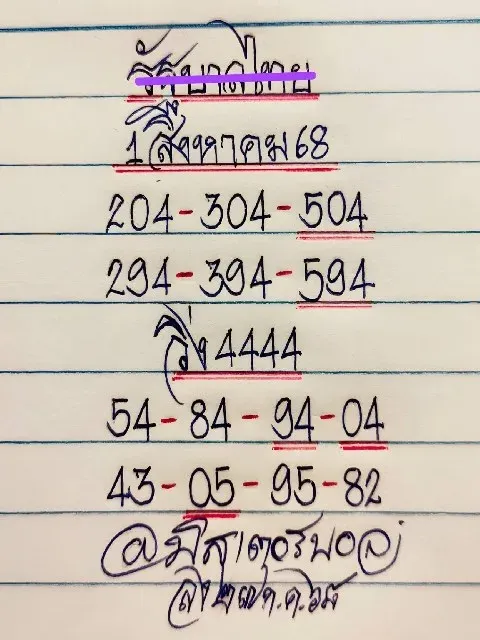 รัฐบาลไทย
1 สิงหาคม 68
204-304-504
294-394-594
วิ่ง 4444
54-84-94-04
43-05-95-82
@มิสเตอร์บอล